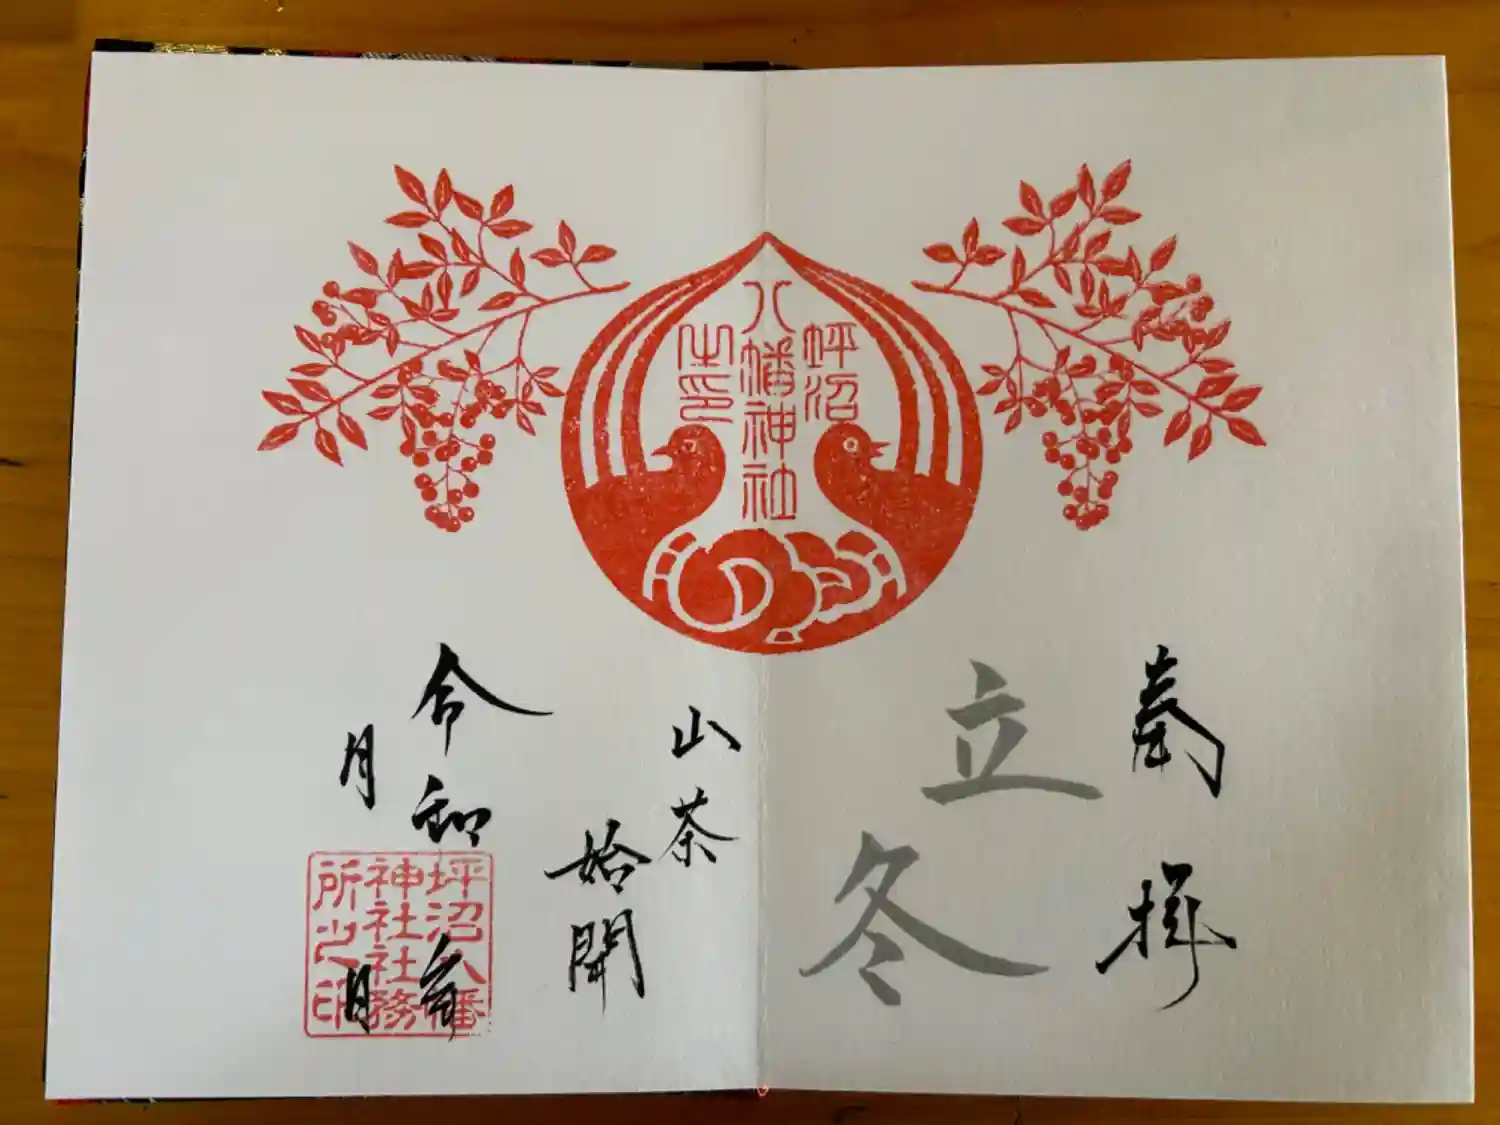 奉拝
立冬
坪沼
八幡神社
之印
山茶
始開
令和 年
月 日
坪沼八幡
神社社務
所之印